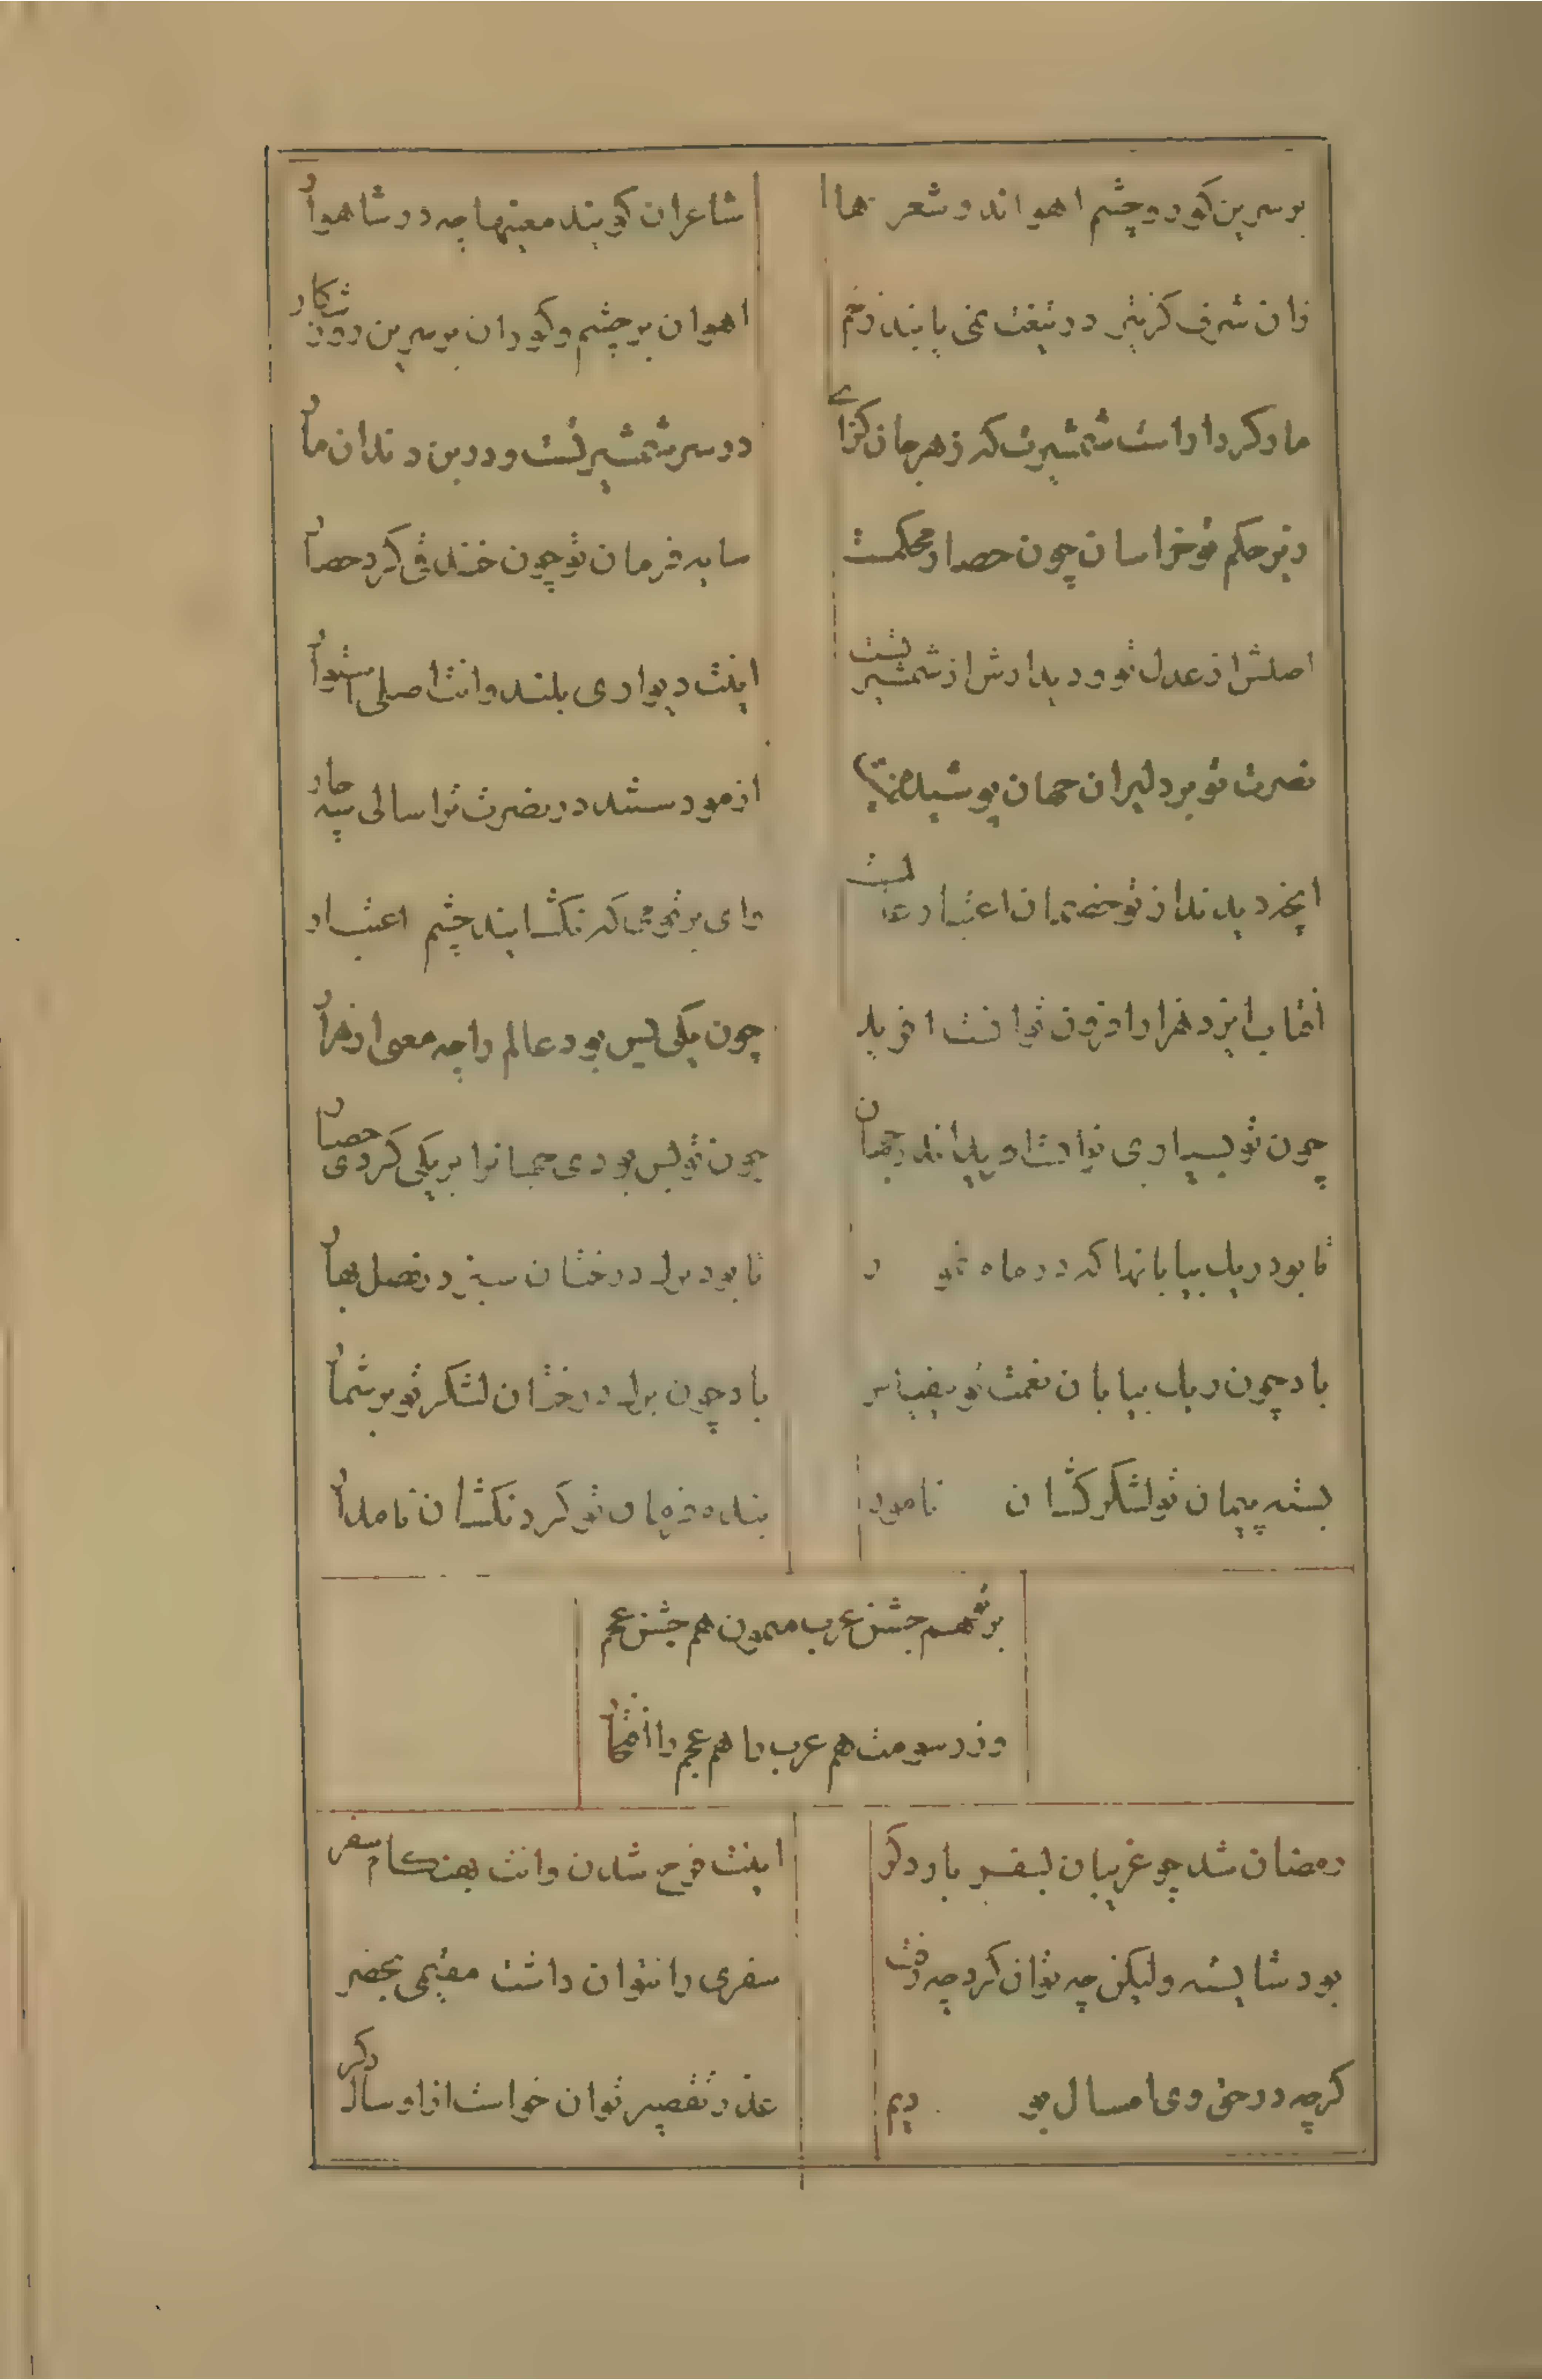 بر سرین کور و چشم اهو اندر شعر ها
شاعران کویند معنیها چه در شاهوار
زان شرف کز تیر در تیغت همی یابند زخم
اهوان بر چشم و کوران بر سرین روز شکار
مار کردار است شمشیرت که زهر جان کزای
در سر شمشیر تست و در بن دندان مار
زیر حکم تو خراسان چون حصار محکمست
سایه فرمان تو چون خندقی کرد حصار
اصلش از عدل تو و دیدارش از شمشیر تست
اینت دیواری بلند و انت اصلی استوار
نصرت تو بر دلیران جهان پوشیده نیست
ازمودستند در نصرت ترا سالی سه چار
انچه دیدند از تو خصمان اعتبار عالمست
وای بر قومی که نکشایند چشم اعتبار
افتاب ایزد هزار افزون توانست افرید
چون یکی بس بود عالم را چه معنی از هزار
چون تو بسیاری توانست اورید اندر جهان
چون تو بس بودی جهانرا بر یکی کردی حصار
تا بود ریک بیابانها که در ماه تمو ز
تا بود برک درختان سبز در فصل بهار
باد چون ریک بیابان نعمت تو بیقیاس
باد چون برک درختان لشکر تو بر شمار
بسته پیمان تو لشکر کشان نامور
بنده فرمان تو کردنکشان نامدار
بر تو هم جشن عرب میمون هم جشن عجم
وز رسومت هم عرب را هم عجم را افتخار
رمضان شد چو غریبان بسفر بار دکر
اینت فرخ شدن و انت بهنکام سفر
بود شایسته ولیکن چه توان کرد چه رفت
سفری را نتوان داشت مقیمی بحضر
کرچه در حق وی امسال بو دیم
عذر تقصیر توان خواست ازاو سال دکر